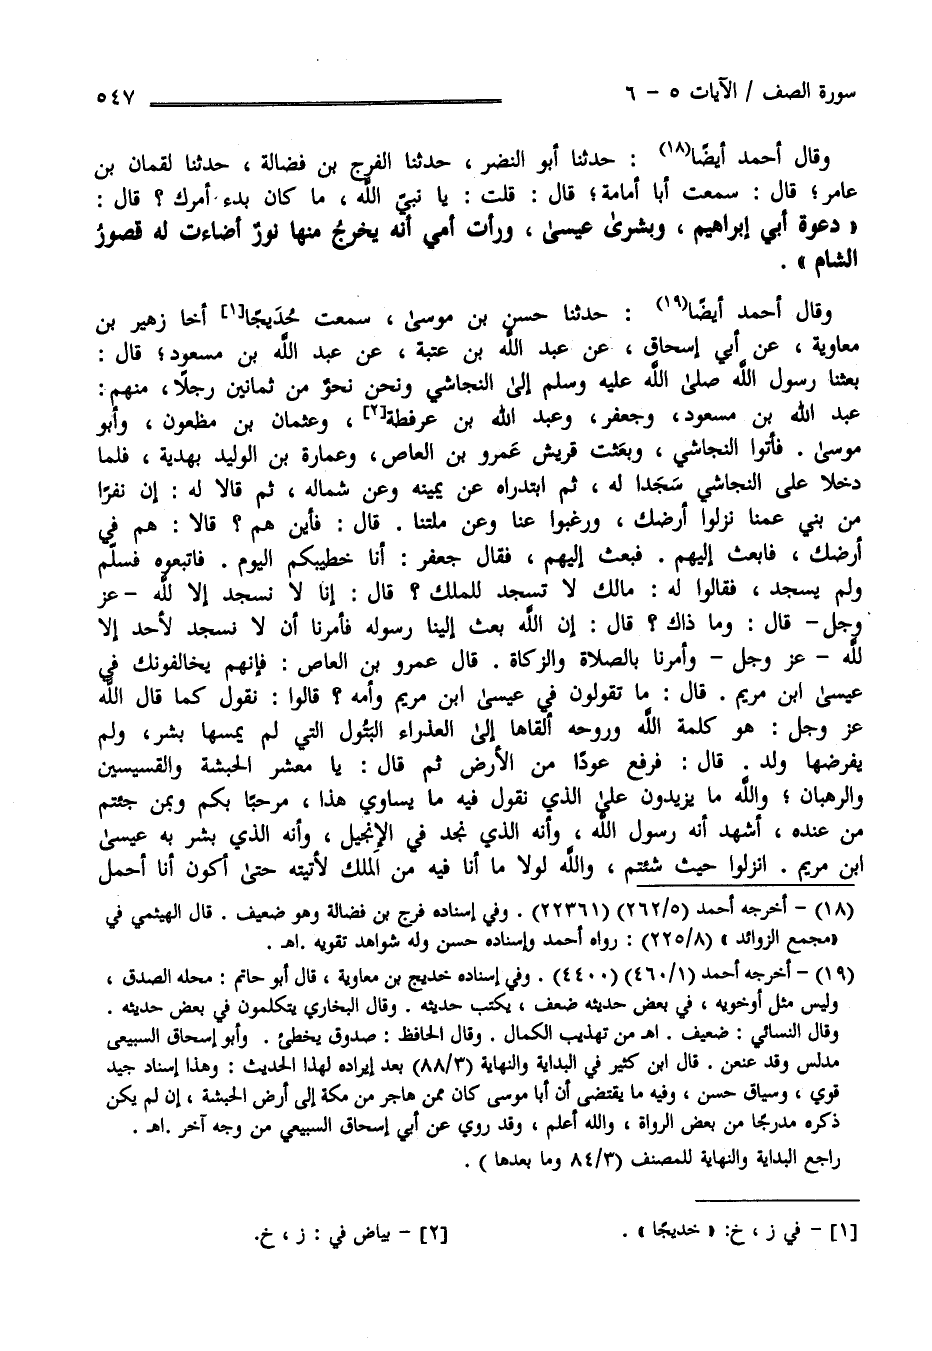 سورة الصف / الآيات ٥ - ٦ ٥٤٧
وقال أحمد أيضًا(١٨) : حدثنا أبو النضر ، حدثنا الفرج بن فضالة ، حدثنا لقمان بن
عامر؛ قال : سمعت أبا أمامة؛ قال : قلت : يا نبيّ اللَّه ، ما كان بدء أمرك ؟ قال :
« دعوة أبي إبراهيم ، وبشرىٰ عيسىٰ ، ورأت أمي أنه يخرجُ منها نورٌ أضاءت له قصورُ
الشام » .
وقال أحمد أيضًا(١٩) : حدثنا حسن بن موسىٰ ، سمعت حُدَيجًا[١] أخا زهير بن
معاوية ، عن أبي إسحاق ، عن عبد اللَّه بن عتبة ، عن عبد اللَّه بن مسعود؛ قال :
بعثنا رسول اللَّه صلىٰ اللَّه عليه وسلم إلىٰ النجاشي ونحن نحوٌ من ثمانين رجلًا، منهم :
عبد الله بن مسعود، وجعفر، وعبد الله بن عرفطة[٢] ، وعثمان بن مظعون ، وأبو
موسىٰ . فأتوا النجاشي ، وبعَثت قريش عَمرو بن العاص، وعمارة بن الوليد بهدية ، فلما
دخلا على النجاشي سَجَدا له ، ثم ابتدراه عن يمينه وعن شماله ، ثم قالا له : إن نفرًا
من بني عمنا نزلوا أرضك ، ورغبوا عنا وعن ملتنا . قال : فأين هم ؟ قالا : هم في
أرضك ، فابعث إليهم . فبعث إليهم ، فقال جعفر : أنا خطيبكم اليوم . فاتبعوه فسلّم
ولم يسجد ، فقالوا له : مالك لا تسجد للملك ؟ قال : إنا لا نسجد إلا للَّه -عز
وجل- قال : وما ذاك ؟ قال : إن اللَّه بعث إلينا رسوله فأمرنا أن لا نسجد لأحد إلا
للَّه - عز وجل - وأمرنا بالصلاة والزكاة . قال عمرو بن العاص : فإنهم يخالفونك في
عيسىٰ ابن مريم . قال : ما تقولون في عيسىٰ ابن مريم وأمه ؟ قالوا : نقول كما قال اللَّه
عز وجل : هو كلمة اللَّه وروحه ألقاها إلىٰ العذراء البَتُول التي لم يمسها بشر، ولم
يفرضها ولد . قال : فرفع عودًا من الأرض ثم قال : يا معشر الحبشة والقسيسين
والرهبان ؛ واللَّه ما يزيدون علىٰ الذي نقول فيه ما يساوي هذا ، مرحبًا بكم وبمن جئتم
من عنده ، أشهد أنه رسول اللَّه ، وأنه الذي نجد في الإنجيل ، وأنه الذي بشر به عيسىٰ
ابن مريم . انزلوا حيث شئتم ، واللَّه لولا ما أنا فيه من الملك لأتيته حتىٰ أكون أنا أحمل
(١٨) - أخرجه أحمد (٢٦٢/٥) (٢٢٣٦١) . وفي إسناده فرج بن فضالة وهو ضعيف . قال الهيثمي في
«مجمع الزوائد » (٢٢٥/٨) : رواه أحمد وإسناده حسن وله شواهد تقويه .اهـ .
(١٩) - أخرجه أحمد (٤٦٠/١) (٤٤٠٠) . وفي إسناده خديج بن معاوية ، قال أبو حاتم : محله الصدق ،
وليس مثل أخويه ، في بعض حديثه ضعف ، يكتب حديثه . وقال البخاري يتكلمون في بعض حديثه .
وقال النسائي : ضعيف . اهـ من تهذيب الكمال . وقال الحافظ : صدوق يخطئ . وأبو إسحاق السبيعى
مدلس وقد عنعن . قال ابن كثير في البداية والنهاية (٨٨/٣) بعد إيراده لهذا الحديث : وهذا إسناد جيد
قوي ، وسياق حسن ، وفيه ما يقتضى أن أبا موسى كان ممن هاجر من مكة إلى أرض الحبشة ، إن لم يكن
ذكره مدرجًا من بعض الرواة ، والله أعلم ، وقد روي عن أبي إسحاق السبيعي من وجه آخر .اهـ .
راجع البداية والنهاية للمصنف (٨٤/٣ وما بعدها ) .
[١] - في ز ، خ: « خديجًا » . [٢] - بياض في : ز ، خ.